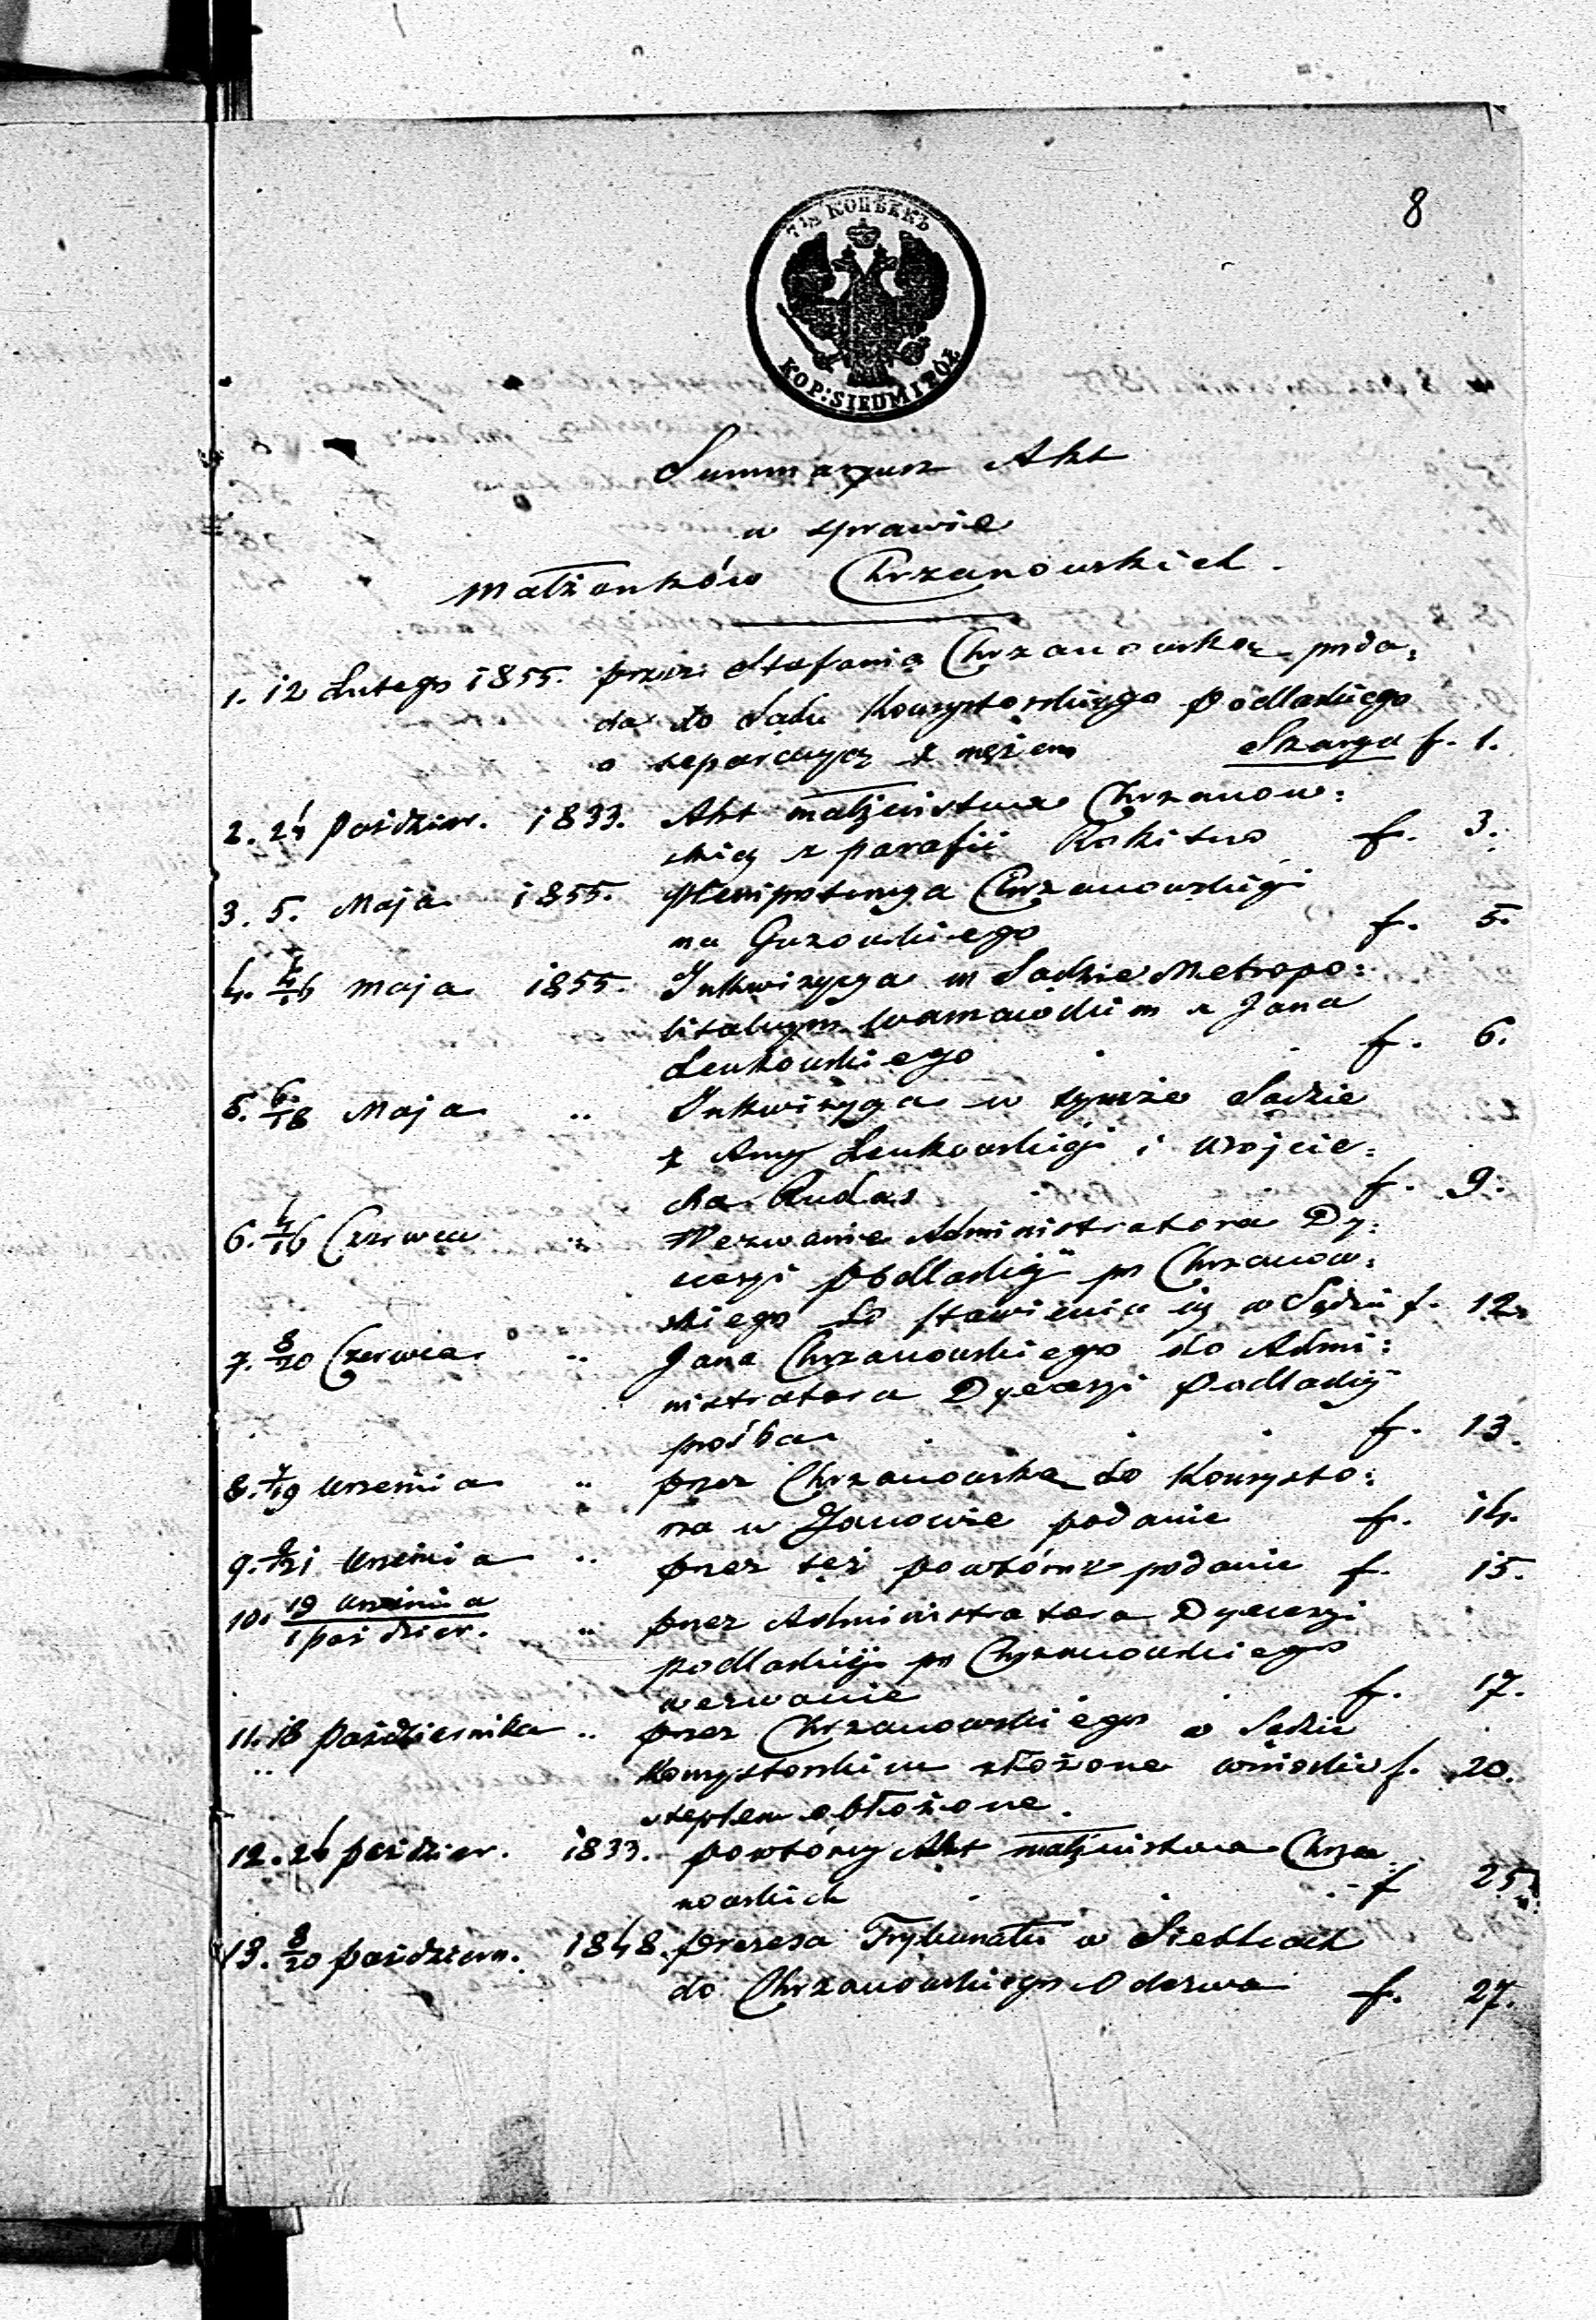 8
7½ КОПѢЕКЪ
KOP: SIEDM I PÓŁ
Summaryusz Akt
w sprawie
małżonków Chrzanowskich.
1. 12 Lutego 1855. przez Stefanią Chrzanowską poda=
da do Sądu Konsystorskiego Podlaskiego
o separacyą z mężem Skarga f. 1.
2. 24 Paździer. 1833. Akt małżeństwa Chrzanow=
skich z parafii Rokitno f. 3.
3. 5. Maja 1855. Plenipotencya Chrzanowskiej
na Guzowskiego f. 5.
4. 4/16 maja 1855. Inkwizycya w Sądzie Metropo=
litalnym warszawskim z Jana
Lenkowskiego f. 6.
5. 6/18 Maja „ Inkwizycya w tymże Sądzie
z Anny Lenkowskiej i Wojcie=
cha Rudas f. 9.
6. 4/16 Czerwca „ Wezwanie Administratora Dy=
ecezyi Podlaskiej po Chrzanow=
skiego do stawienia się w Sądzie f. 12.
7. 8/20 Czerwca „ Jana Chrzanowskiego do Admi=
nistratora Dyecezyi Podlaskiej
prośba f. 13.
8. 7/19 Września „ przez Chrzanowską do Konsysto=
rza w Janowie podanie f. 14.
9. 9/21 Września „ przez też powtórne podanie f. 15.
10. 19 Września / 1 Paździer. „ przez Administratora Dyecezyi
podlaskiej po Chrzanowskiego
wezwanie f. 17.
11. 18 Października „ przez Chrzanowskiego w Sądzie
„ Konsystorskim złożone wnioski f. 20.
steplem obłożone.
12. 24 paździer. 1833. powtórny Akt małżeństwa Chrza=
nowskich f 25.
13. 8/20 październ. 1848. Prezesa Trybunału w Siedlcach
do Chrzanowskiego Odezwa f. 27.